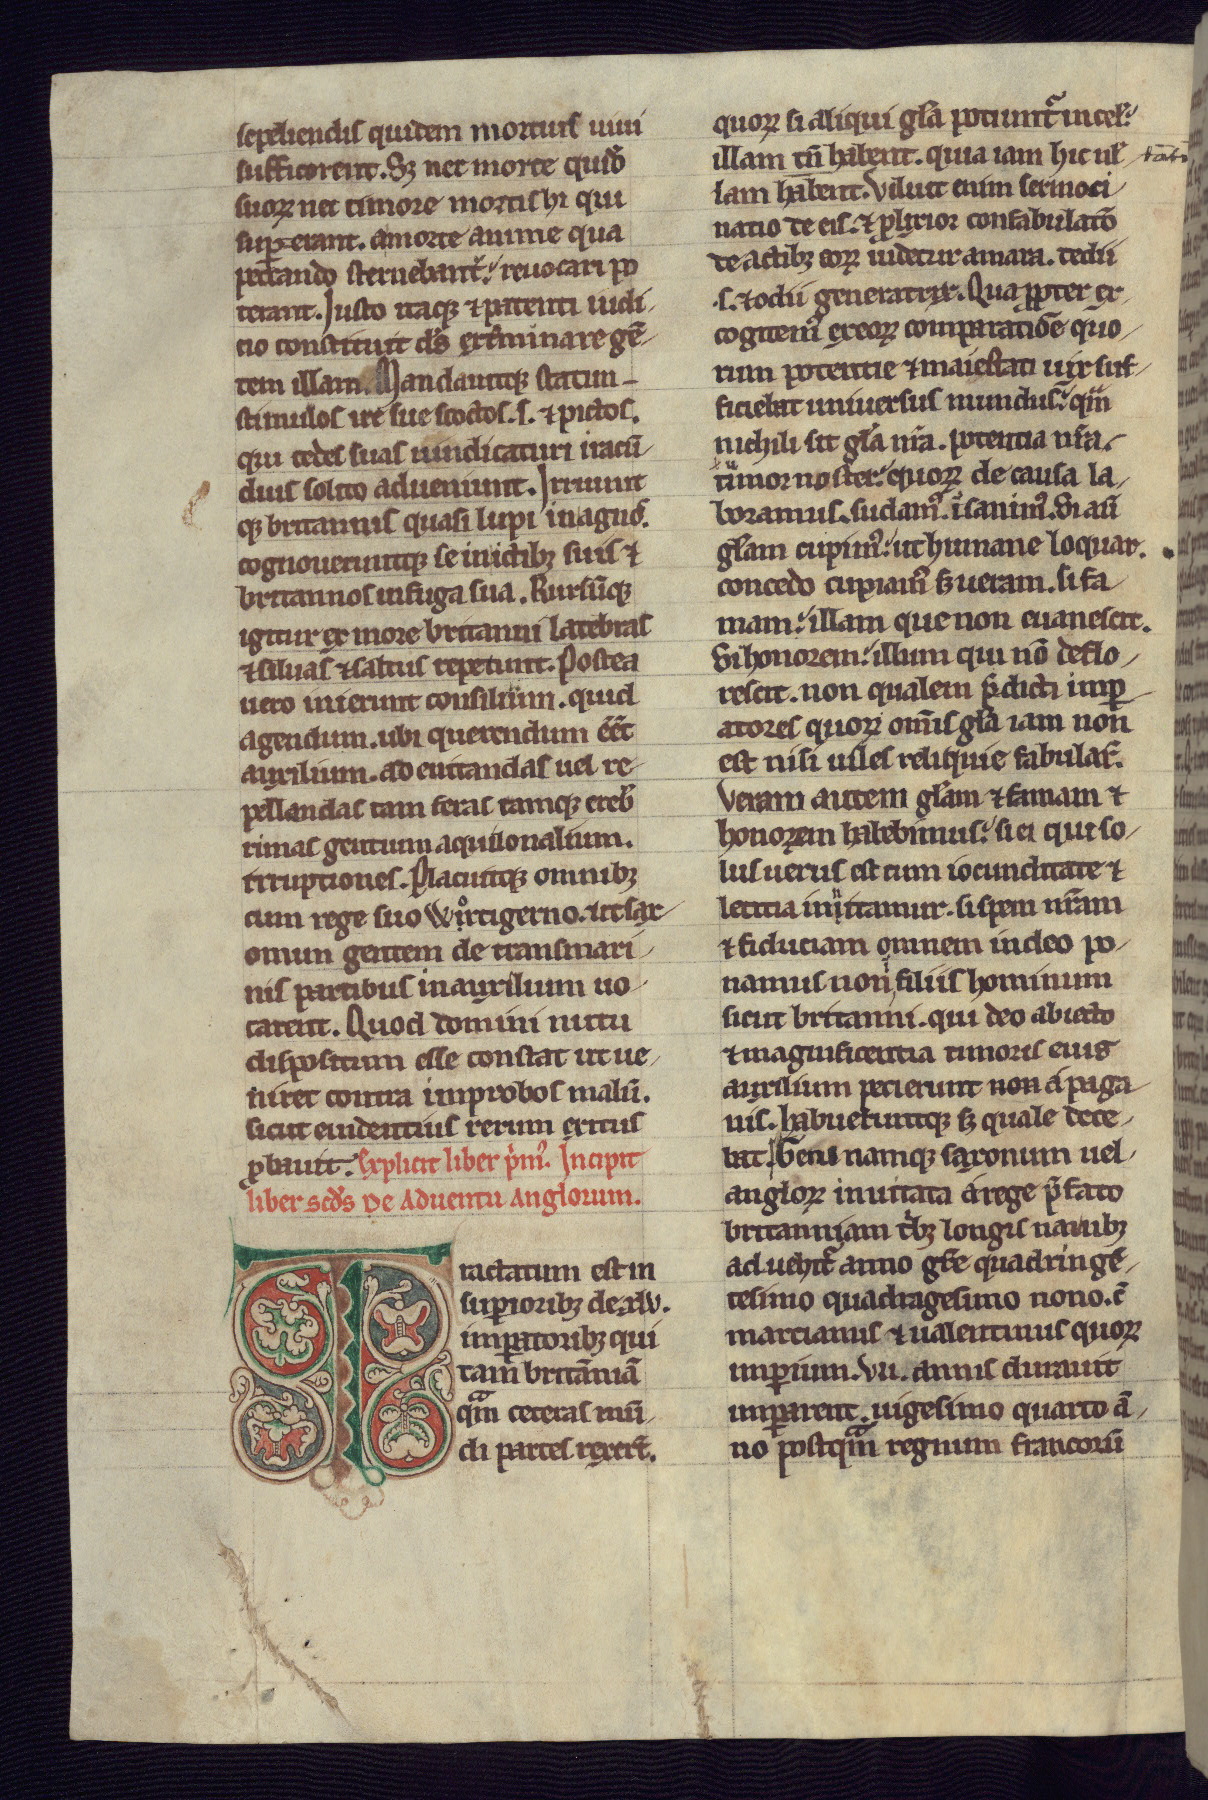 sepeliendis quidem mortuis uiui
sufficerent. Sꝫ nec morte quidē
suoꝝ nec timore mortis hi qui
suꝑerant. a morte anime qua
peccando sternebant᷑. reuocari po
terant. Iusto itaqꝫ ⁊ patenti iudi/
cio constituit dn̄s ext͛minare gē/
tem illam. Mandauitqꝫ statim
stimulos ire sue scottos .s. ⁊ pictos.
qui cedes suas uindicaturi iracū/
duis solito adueniunt. Irruunt
qꝫ britannis quasi lupi in agnos.
cognoueruntqꝫ se in ictibꝫ suis ⁊
britannos in fuga sua. Rursūqꝫ
igitur ex more britanni latebras
⁊ siluas ⁊ saltus repetunt. Postea
uero inierunt consilium. quid
agendum. ubi querendum ēēt
auxilium. ad euitandas uel re/
pellandas tam feras tamqꝫ creb͛
rimas gentium aquilonalium.
irruptiones. Placuitqꝫ omnibꝫ
cum rege suo Wortigerno. ut sax/
onum gentem de transmari/
nis partibus in auxilium uo/
carent. Quod domini nutu
dispositum esse constat ut ue/
niret contra improbos malū.
sicut euidentius rerum exitus
ꝓbauit. Explicit liber pͥm᷒. Incipit
liber scd̄s De Aduentu Anglorum.
Tractatum est in
suꝑioribꝫ de .xlv.
imꝑatoribꝫ qui
tam britāniā
qͣm ceteras mū/
di partes rexer̄t.
quoꝝ si aliqui gl̄a potiunt᷑ in cel̄.
illam tn̄ habent. quia iam hic nl̄
lam habent. Viluit enim sermoci/
natio de eis. ⁊ ꝓlixior confabulatō
de actibꝫ eoꝝ uidetur amara. tedii
.s. ⁊ odii generatrix. Qua ꝓpter ex/
cogitem᷒ ex eoꝝ comparatiōe quo/
rum potentie ⁊ maiestati uix suf/
ficiebat uniuersus mundus. qͣm
nichili sit gl̄a nr̄a. potentia nr̄a.
timor noster. quoꝝ de causa la/
boramus. sudam᷒. īsanim᷒. Si asi
gl̄am cupim᷒. ut humane loquar.
concedo cupiam᷒ sꝫ ueram. si fa
mam. illam que non euanescit.
Si honorem. illum qui nō deflo/
rescit. non qualem p̄dicti imꝑ
atores quoꝝ om̄is gl̄a iam non
est nisi uiles reliquie fabulas.
Veram autem gl̄am ⁊ famam ⁊
honorem habebimus. si ei qui so/
lus uerus est cum iocunditate ⁊
letitia innitamur. si spem nr̄am
⁊ fiduciam omnem in deo po/
namus non in filiis hominum
sicut britanni. qui deo abiecto
⁊ magnificentia timoris eius
auxilium petierunt a paga
nis. habueruntqꝫ sꝫ quale dece/
bat. Gens namqꝫ saxonum uel/
angloꝝ inuitata a rege p̄fato
britanniam tͥbꝫ longis nauibꝫ
aduehit᷑ anno gr̄e quadringē/
tesimo quadragesimo nono. c̄
marcianus ⁊ ualentinus quoꝝ
imꝑium .vii. annis durauit
imꝑarent. uigesimo quarto ā/
no postqͣm regnum francorū